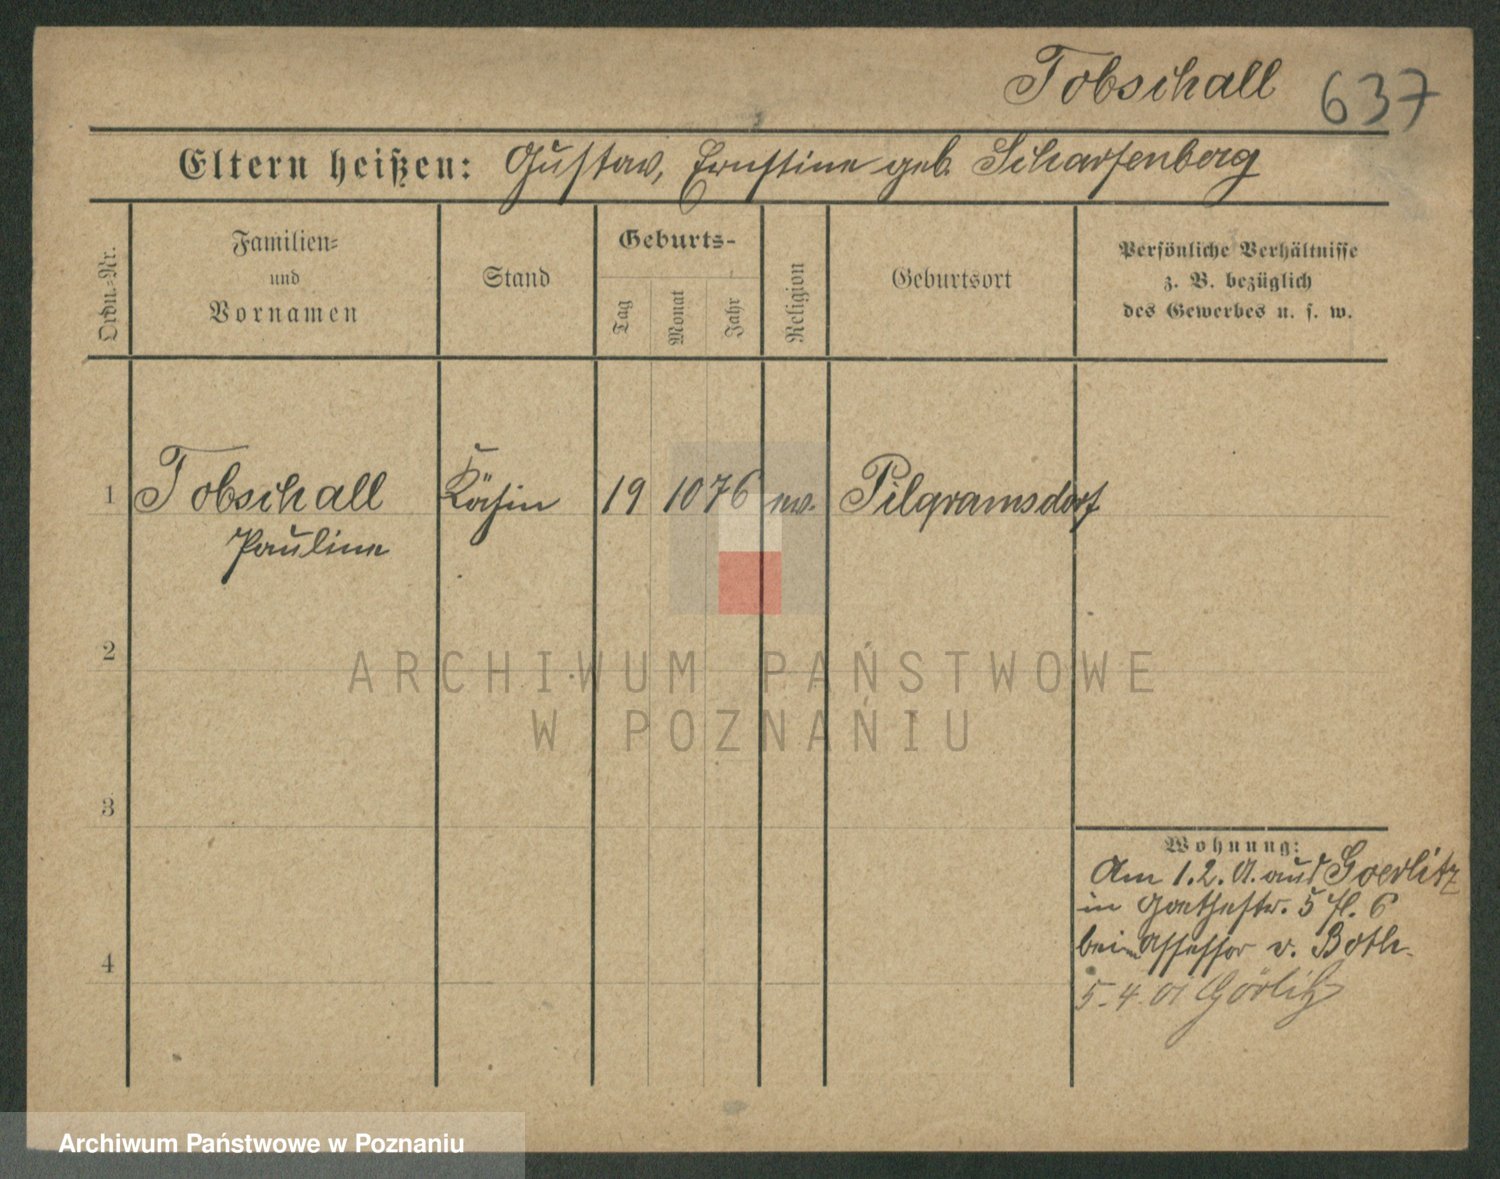 Tobschall 637
Eltern heißen: Gustav, Ernstine geb. Scharfenberg
Ordn.-Nr.
Familien-
und
Vornamen
Stand
Geburts-
Tag
Monat
Jahr
Religion
Geburtsort
Persönliche Verhältnisse
z. B. bezüglich
des Gewerbes u. s. w.
1 Tobschall Köchin 19 10 76 ev. Pilgramsdorf
Pauline
2
ARCHIWUM PAŃSTWOWE
W POZNANIU
3
Wohnung:
Am 1. 2. 01. aus Goerlitz
in Goethestr. 5 6
beim Assessor v. Both.
4
5. 4. 01 Görlitz
Archiwum Państwowe w Poznaniu